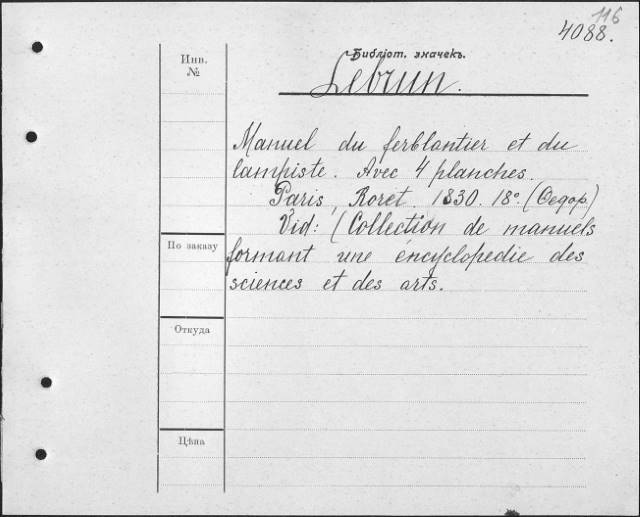 116
4088.
Библіот. значекъ.
Lebrun.
Инв.
№
Manuel du ferblantier et du
lampiste. Avec 4 planches.
Paris, Roret. 1830. 18°. (Ѳедор.)
Vid: (Collection de manuels
По заказу
formant une éncyclopedie des
sciences et des arts.
Откуда
Цѣна